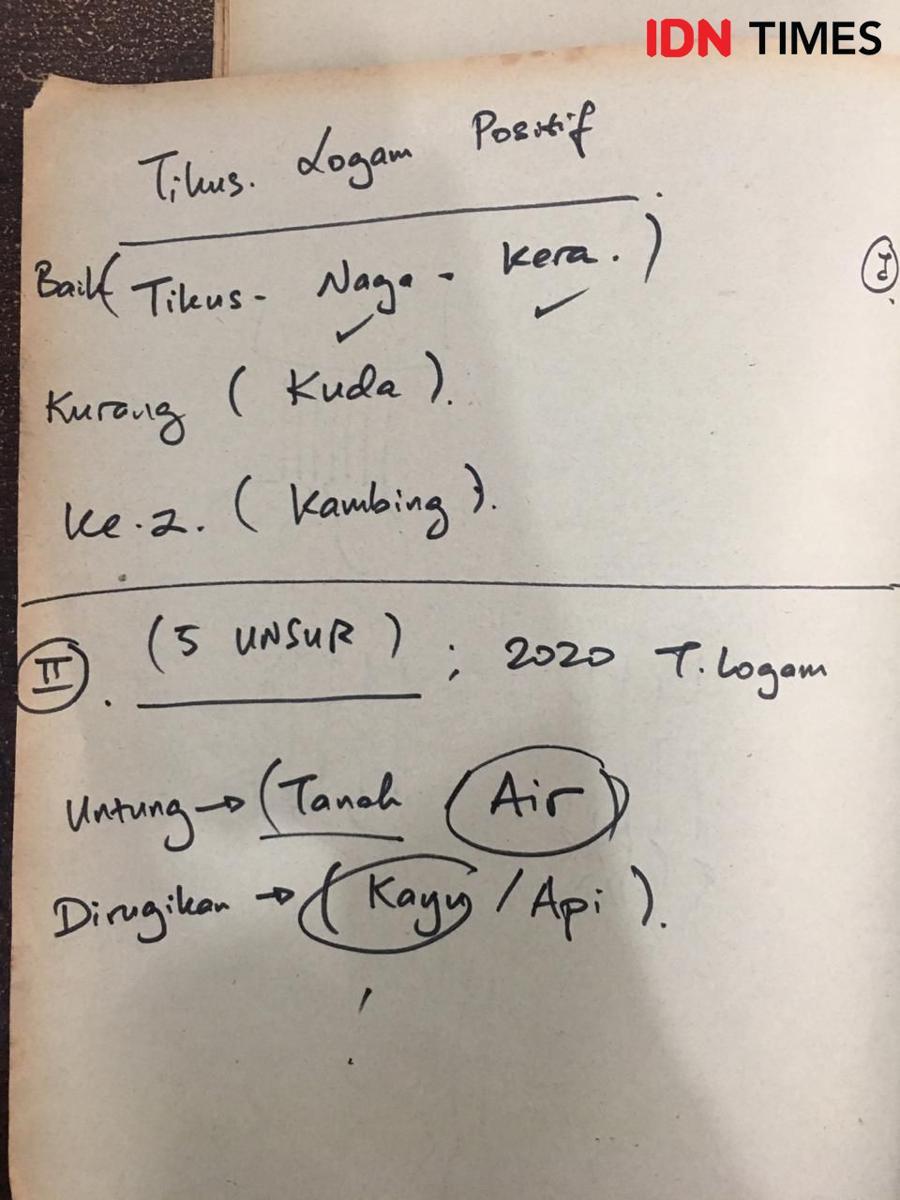 IDN TIMES
Tikus. Logam Positif
Baik (Tikus - Naga - Kera.)
I
Kurang (Kuda).
Ke.2. (Kambing).
II. (5 UNSUR) ; 2020 T. Logam
Untung → (Tanah (Air))
Dirugikan → (Kayu / Api).